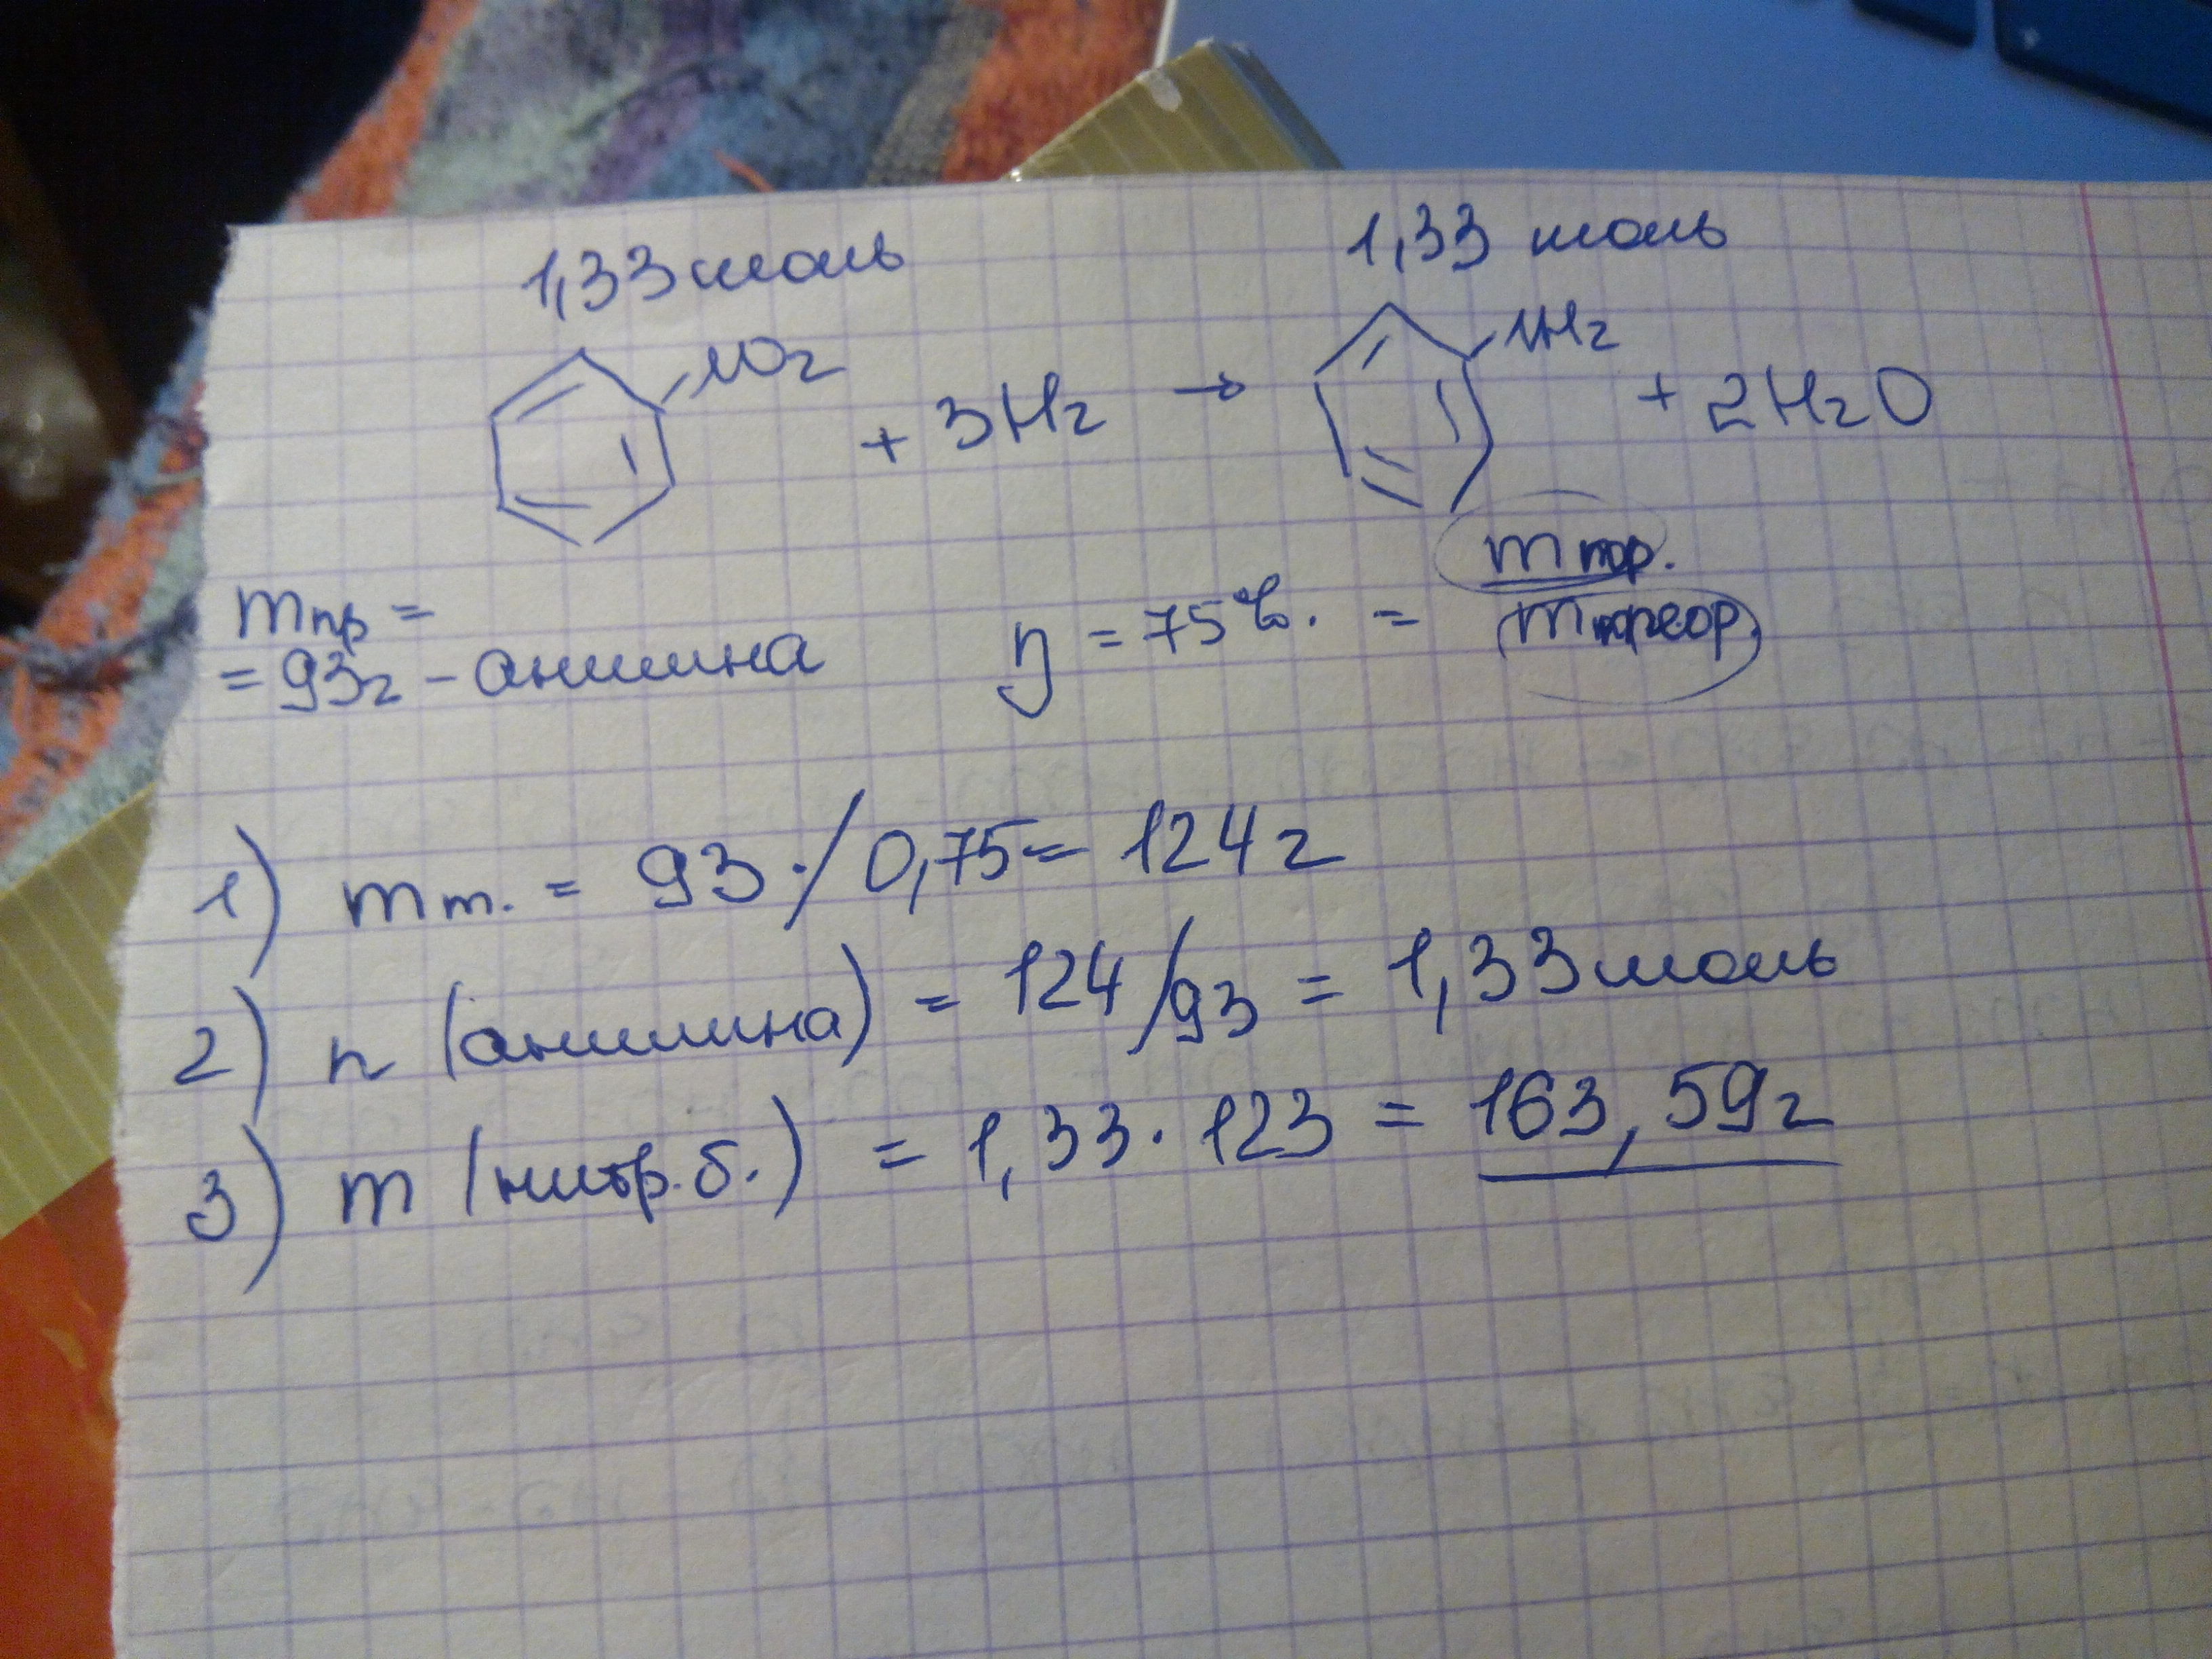 1,33 моль
1,33 моль
NO2 + 3H2 → NH2 + 2H2O
mпр =
= 93г - анилина
η = 75%. = mпр. / mтеор.
1) mт. = 93 ·/ 0,75 = 124 г
2) n (анилина) = 124/93 = 1,33 моль
3) m (нитр.б.) = 1,33 · 123 = 163,59 г